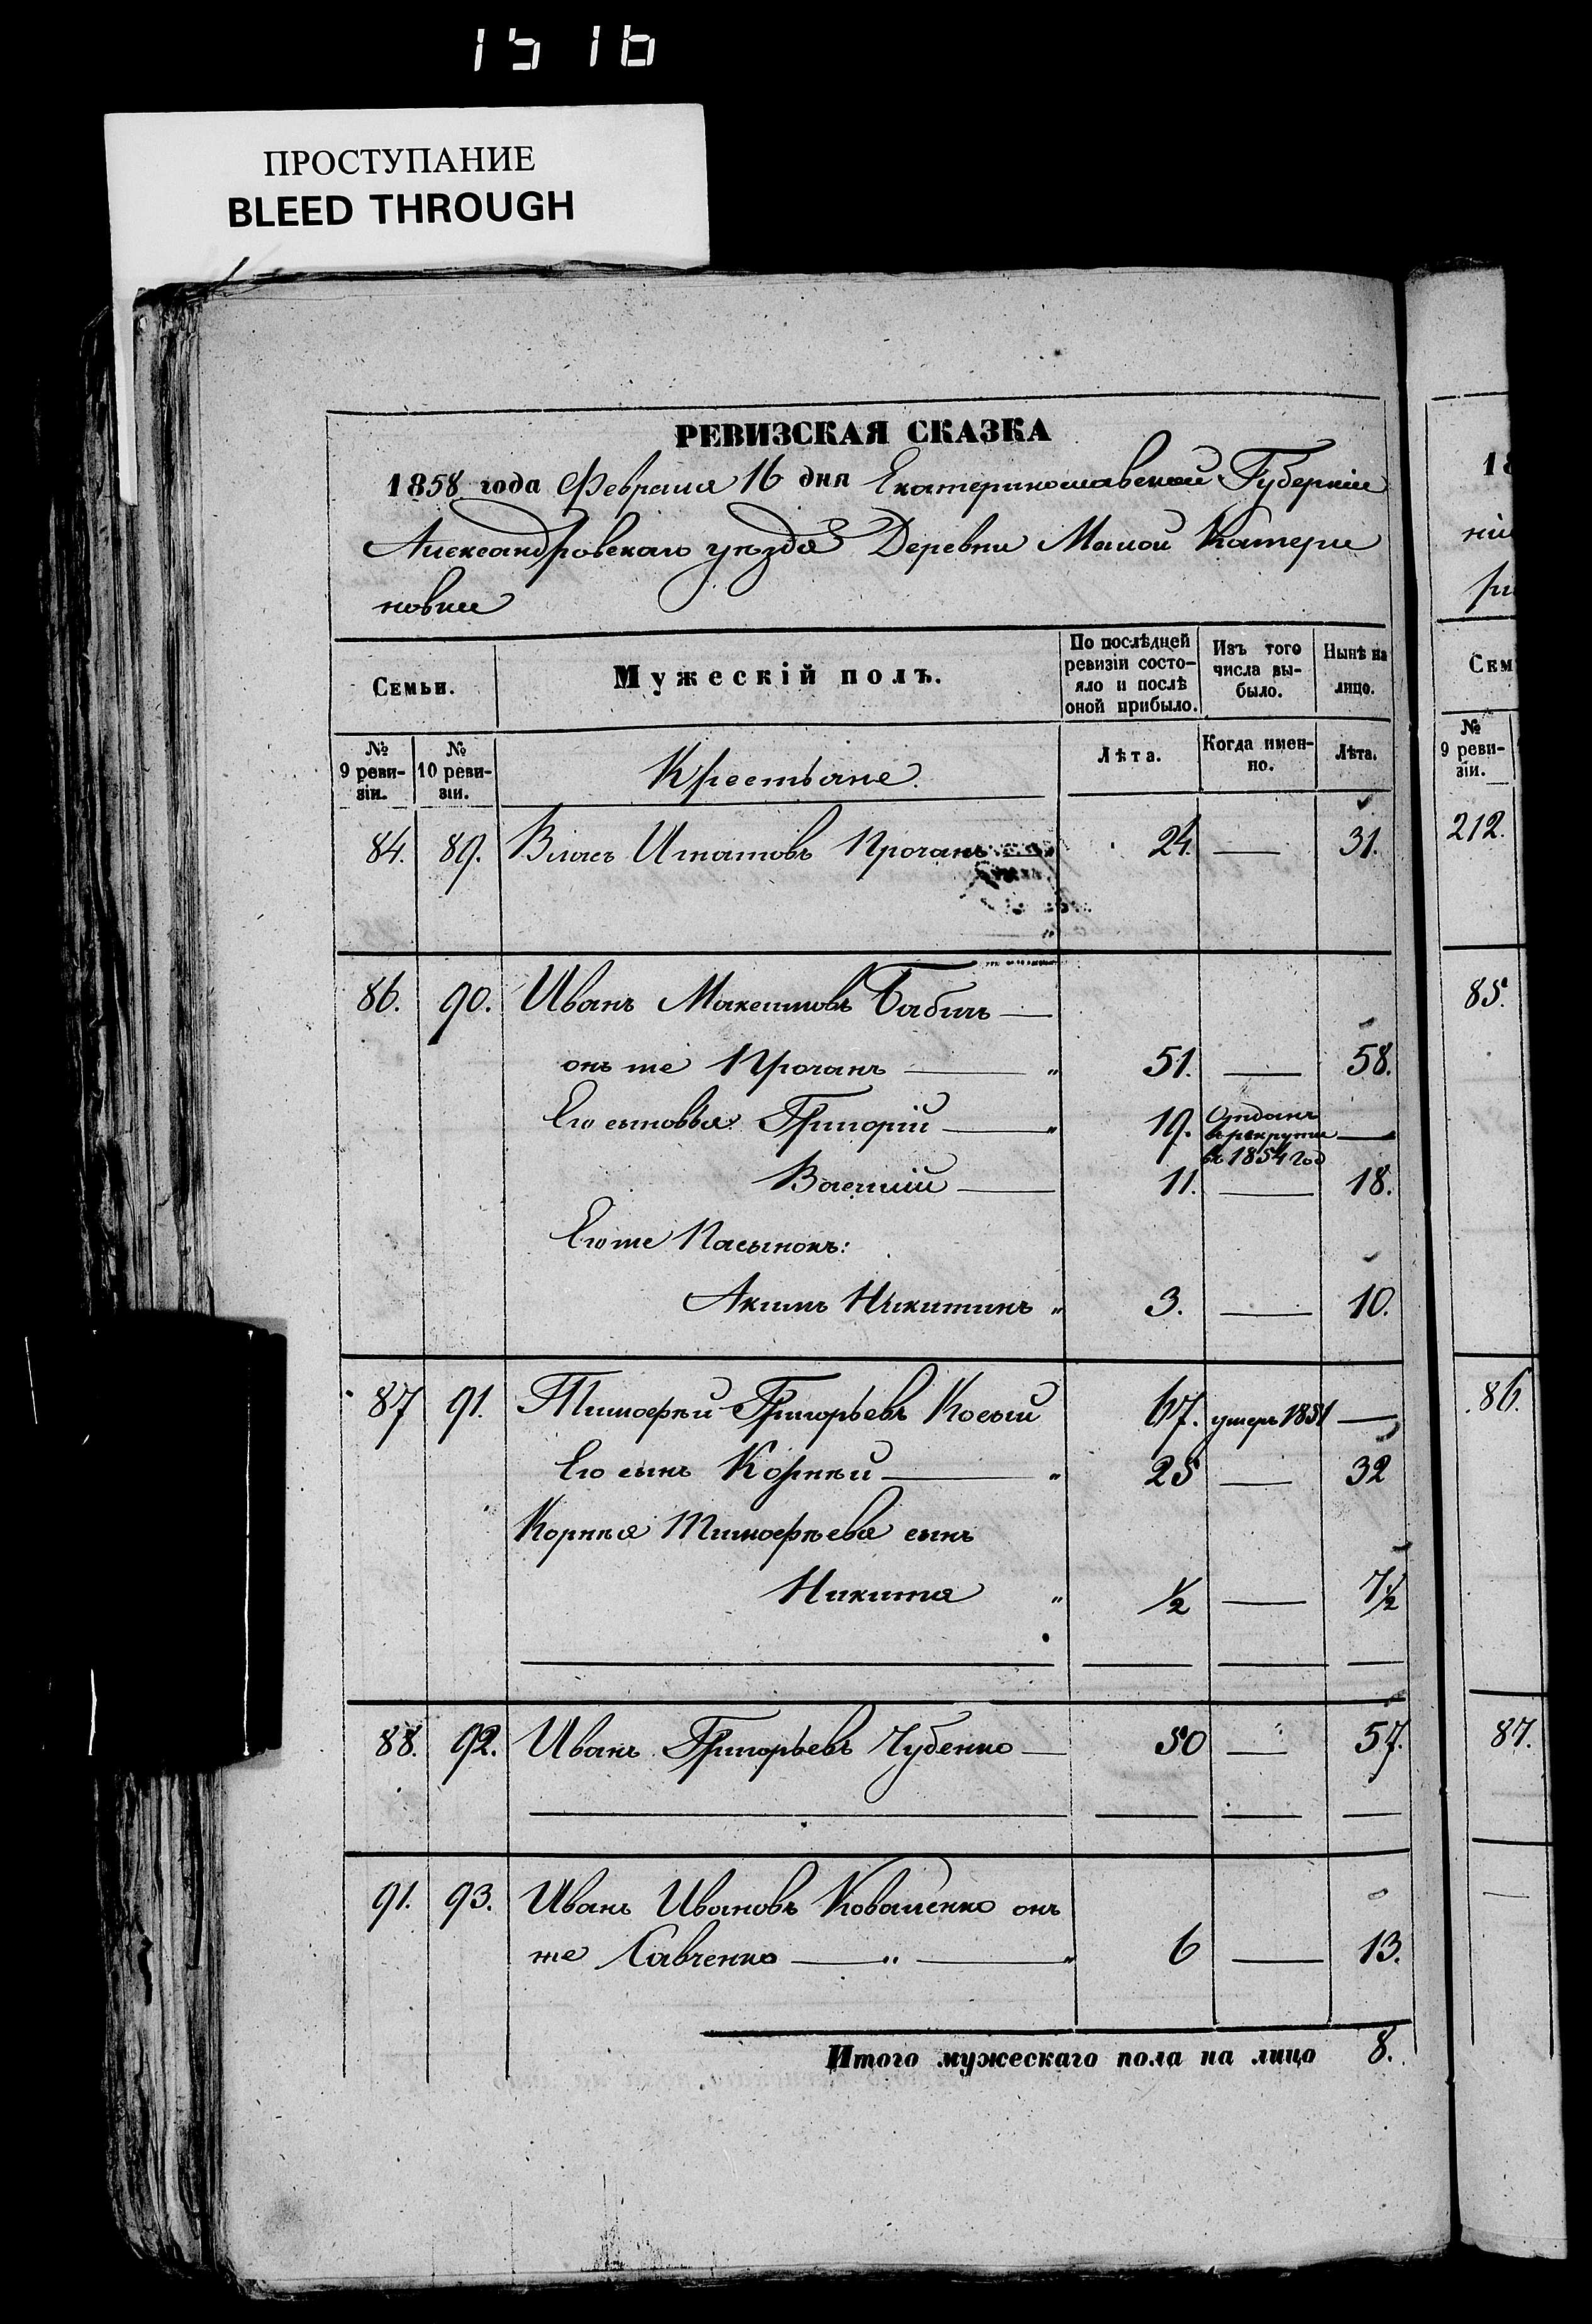 1516
ПРОСТУПАНИЕ
BLEED THROUGH
РЕВИЗСКАЯ СКАЗКА
1858 года Февраля 16 дня Екатеринославской Губерніи
Александровскаго уѣзда Деревни Малой Катери
новки
Семьи.
Мужескій полъ.
По послѣдней ревизіи состо-
яло и послѣ оной прибыло.
Изъ того числа вы-
было.
Нынѣ на лицо.
№ 9 реви-
зіи.
№ 10 реви-
зіи.
Крестьяне.
Лѣта.
Когда имен-
но.
Лѣта.
84. 89. Власъ Игнатовъ Прочанъ 24. — 31.
86. 90. Иванъ Максимовъ Бабичъ —
онъ же Прочанъ — „ 51. — 58.
Его сыновья: Григорій — „ 19. Отданъ
въ рекруты —
въ 1854 год
Василій — 11. — 18.
Его же Пасынокъ:
Акимъ Никитинъ „ 3. — 10.
87 91. Тимофѣй Григорьевъ Косый 67. умеръ 1851 —
Его сынъ Корнѣй — „ 25 — 32
Корнѣя Тимофѣева сынъ
Никита „ ½ — 7½
88. 92. Иванъ Григорьевъ Чубенко — 50 — 57.
91. 93. Иванъ Ивановъ Коваленко онъ
же Савченко — „ — „ 6 — 13.
Итого мужескаго пола на лицо 8.
18
ніи
ри
Сем
№
9 реви-
зіи.
212.
85.
86.
87.